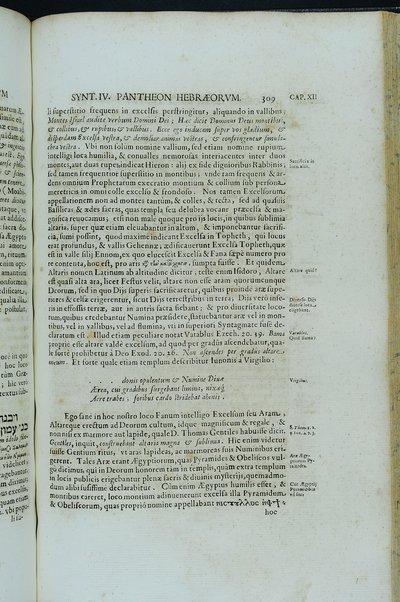 SYNT. IV. PANTHEON HEBRÆORVM. 309 CAP. XII
li superstitio frequens in excelsis perstringitur, aliquando in vallibus,
Montes Israel audite verbum Domini Dei; Hæc dicit Dominus Deus montibus,
& collibus, & rupibus & vallibus. Ecce ego inducam super vos gladium, &
disperdam Excelsa vestra, & demoliar animas vestras, & confringentur simula-
chra vestra. Vbi non solum nomine vallium, sed etiam nomine rupium,
intelligi loca humilia, & conualles nemorosas interiacentes inter duos
montes, aut duas rupes, indicat Hieron: alij ex side dignioribus Rabbinis,
sed tamen frequentior superstitio in montibus; vnde tam frequens & ar-
dens omnium Prophetarum execratio montium & collium sub persona
meretricis in omni colle excelso & frondoso. Non tamen Excelsorum
appellationem ad montes tantùm, & colles, & tecta, sed ad quasuis
Basilicas & ædes sacras, quas templa seu delubra vocant præcelsa & ma-
gnifica reuocamus, est non male quoque pro ijs locis, in quibus sublimia
altaria super quæ etiam eleuabantur in altum, & imponebantur sacrifi-
cia, sumi possint, quod maximè indicant Excelsa in Topheth, qui locus
erat profundus, & vallis Gehinnæ, ædificauerunt Excelsa Topheth, quæ
est in valle filij Ennom, ex quo eluceseit Excelsa & Fana sæpè numero pro
re contenta, hoc est, pro aris sumpta fuisse. Et quidem
Altaris nomen Latinum ab altitudine dicitur, teste enim Isidoro, Altare
est quasi alta ara, licet Festus velit, altare non esse aram quorumcunque
Deorum, sed in quo Dijs superis sacrificaretur, quibus proinde aræ supe-
ris & celsæ erigerentur, sicut Dijs terrestribus in terra; Diis verò infe-
ris in effossis terræ, aut in antris sacra fiebant; & pro diuersitate loco-
rum, quibus credebantur Numina præsidere, statuebantur aræ vel in mon-
tibus, vel in vallibus, vel ad flumina, vti in superiori Syntagmate fusè de-
claratum est. Illud etiam peculiare notat Vatablus Ezech. 20. 29. Bama
propriè esse altare valdè excelsum, ad quod per gradus ascendebatur, qua-
le fortè prohibetur à Deo Exod. 20. 26. Non ascendes per gradus altare
meum. Et fortè quale etiam templum describitur Iunonis à Virgilio:
. donis opulentum & Numine Diuæ
Ærea, cui gradibus surgebant limina, nixæq;
Ære trabes: foribus cardo stridebat ahenis.
Ego sanè in hoc nostro loco Fanum intelligo Excelsum seu Aram,
Altareque erectum ad Deorum cultum, idque magnificum & regale, &
non nisi ex marmore aut lapide, quale D. Thomas Gentiles habuisse dicit.
Gentiles, inquit, construebant altaria magna & sublimia. Hic enim videtur
fuisse Gentium ritus, vt aras lapideas, ac marmoreas suis Numinibus eri-
gerent. Tales Aræ erant Ægyptiorum, quas Pyramides & Obeliscos vul-
gò dicimus, qui in Deorum honorem tam in templis, quàm extra templum
in locis publicis erigebantur plenæ sacris & diuinis mysterijs, quemadmo-
dum alibi fusissimè declarabitur. Cùm enim Ægyptus humilis esset, &
montibus careret, loco montium adinuenerunt excelsa illa Pyramidum
& Obeliscorum, quas proprio nomine appellabant
hoc
Sacrificia in
Altare quid?
Diuersis Diis
Vatablus.
Quid Bama?
Virgilius.
Aræ Ægy-
ptiorum Py-
ramides.
Cur Ægyptij
Pyramidibus